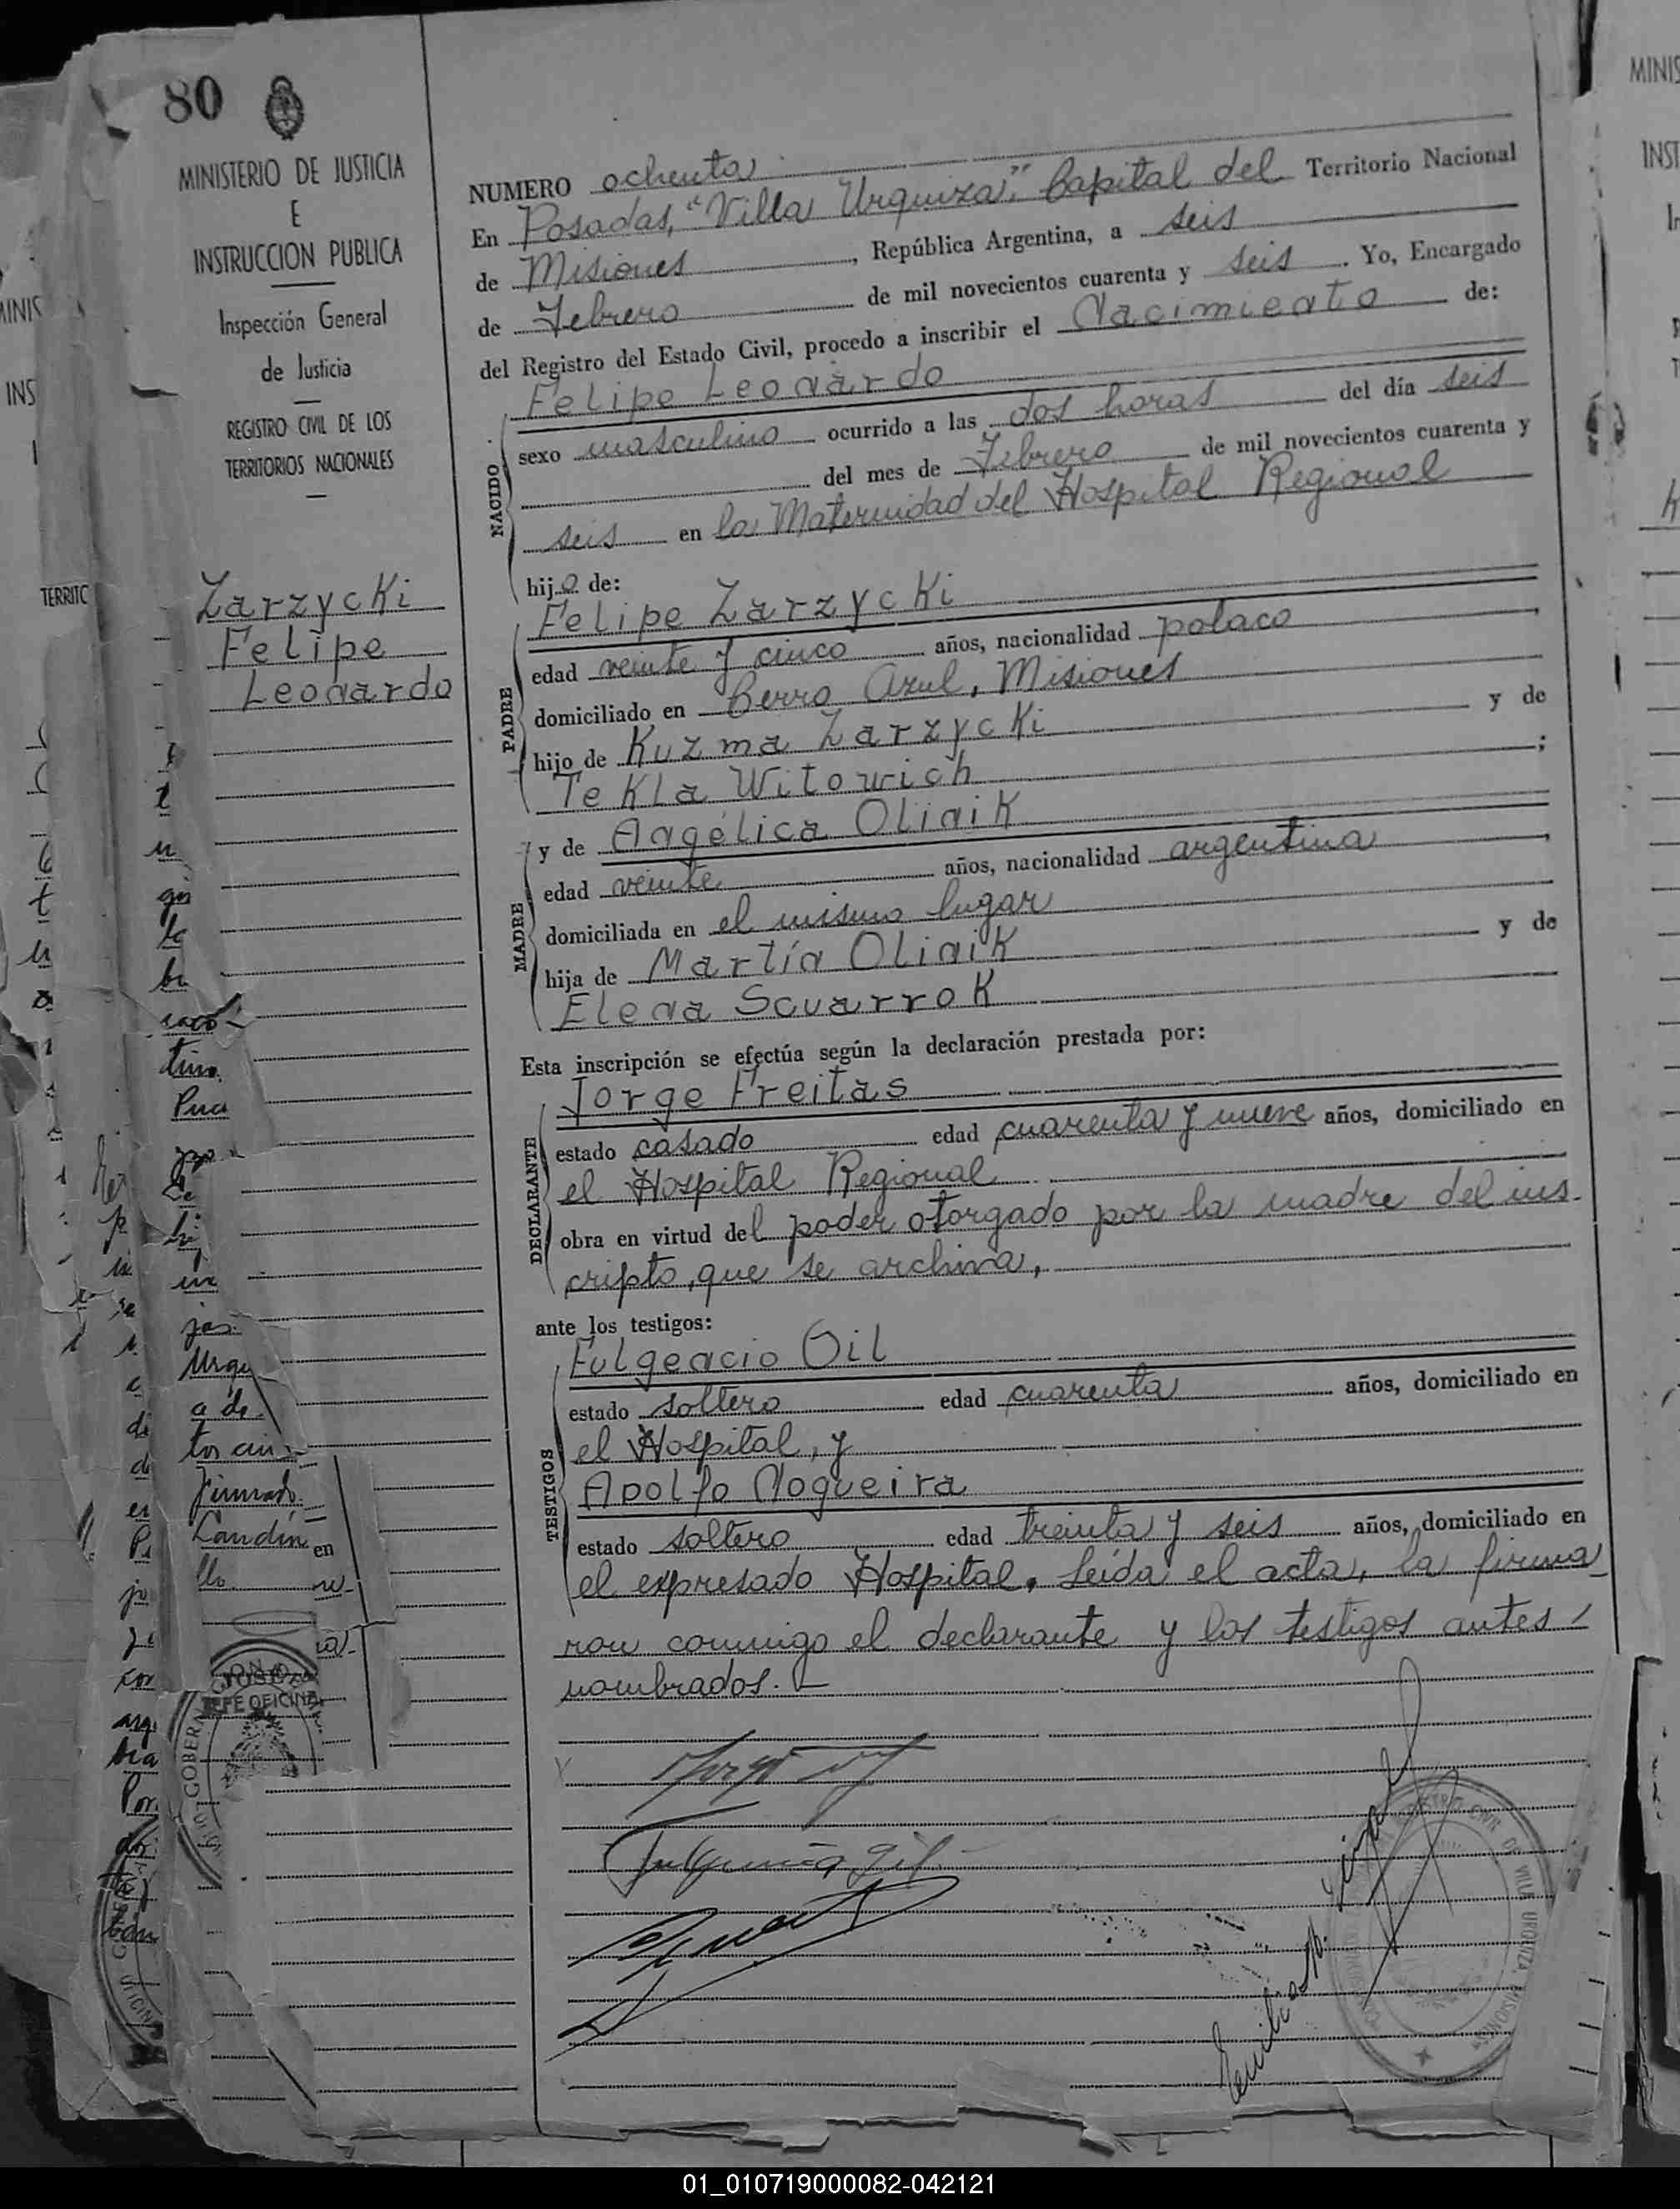 80
MINISTERIO DE JUSTICIA
E
INSTRUCCION PUBLICA
Inspección General
de Justicia
REGISTRO CIVIL DE LOS
TERRITORIOS NACIONALES
Zarzycki
Felipe
Leonardo
NUMERO ochenta
En Posadas, "Villa Urquiza", Capital del Territorio Nacional
de Misiones, República Argentina, a seis
de Febrero de mil novecientos cuarenta y seis. Yo, Encargado
del Registro del Estado Civil, procedo a inscribir el Nacimiento de:
NACIDO
Felipe Leonardo
sexo masculino ocurrido a las dos horas del día seis
del mes de Febrero de mil novecientos cuarenta y
seis en la Maternidad del Hospital Regional
hijo de:
PADRE
Felipe Zarzycki
edad veinte y cinco años, nacionalidad polaco,
domiciliado en Cerro Azul, Misiones
hijo de Kuzma Zarzycki y de
Tekla Witowich;
MADRE
y de Angélica Olinik
edad veinte años, nacionalidad argentina,
domiciliada en el mismo lugar
hija de Martín Olinik y de
Elena Scuarrok
Esta inscripción se efectúa según la declaración prestada por:
DECLARANTE
Jorge Freitas
estado casado edad cuarenta y nueve años, domiciliado en
el Hospital Regional
obra en virtud del poder otorgado por la madre del ins-
cripto, que se archiva,
ante los testigos:
TESTIGOS
Fulgencio Gil
estado soltero edad cuarenta años, domiciliado en
el Hospital, y
Adolfo Nogueira
estado soltero edad treinta y seis años, domiciliado en
el expresado Hospital. Leída el acta, la firma-
ron conmigo el declarante y los testigos antes
nombrados.
Fulgencio Gil
REGISTRO CIVIL DE VILLA URQUIZA MISIONES
JEFE OFICINA
01_010719000082-042121